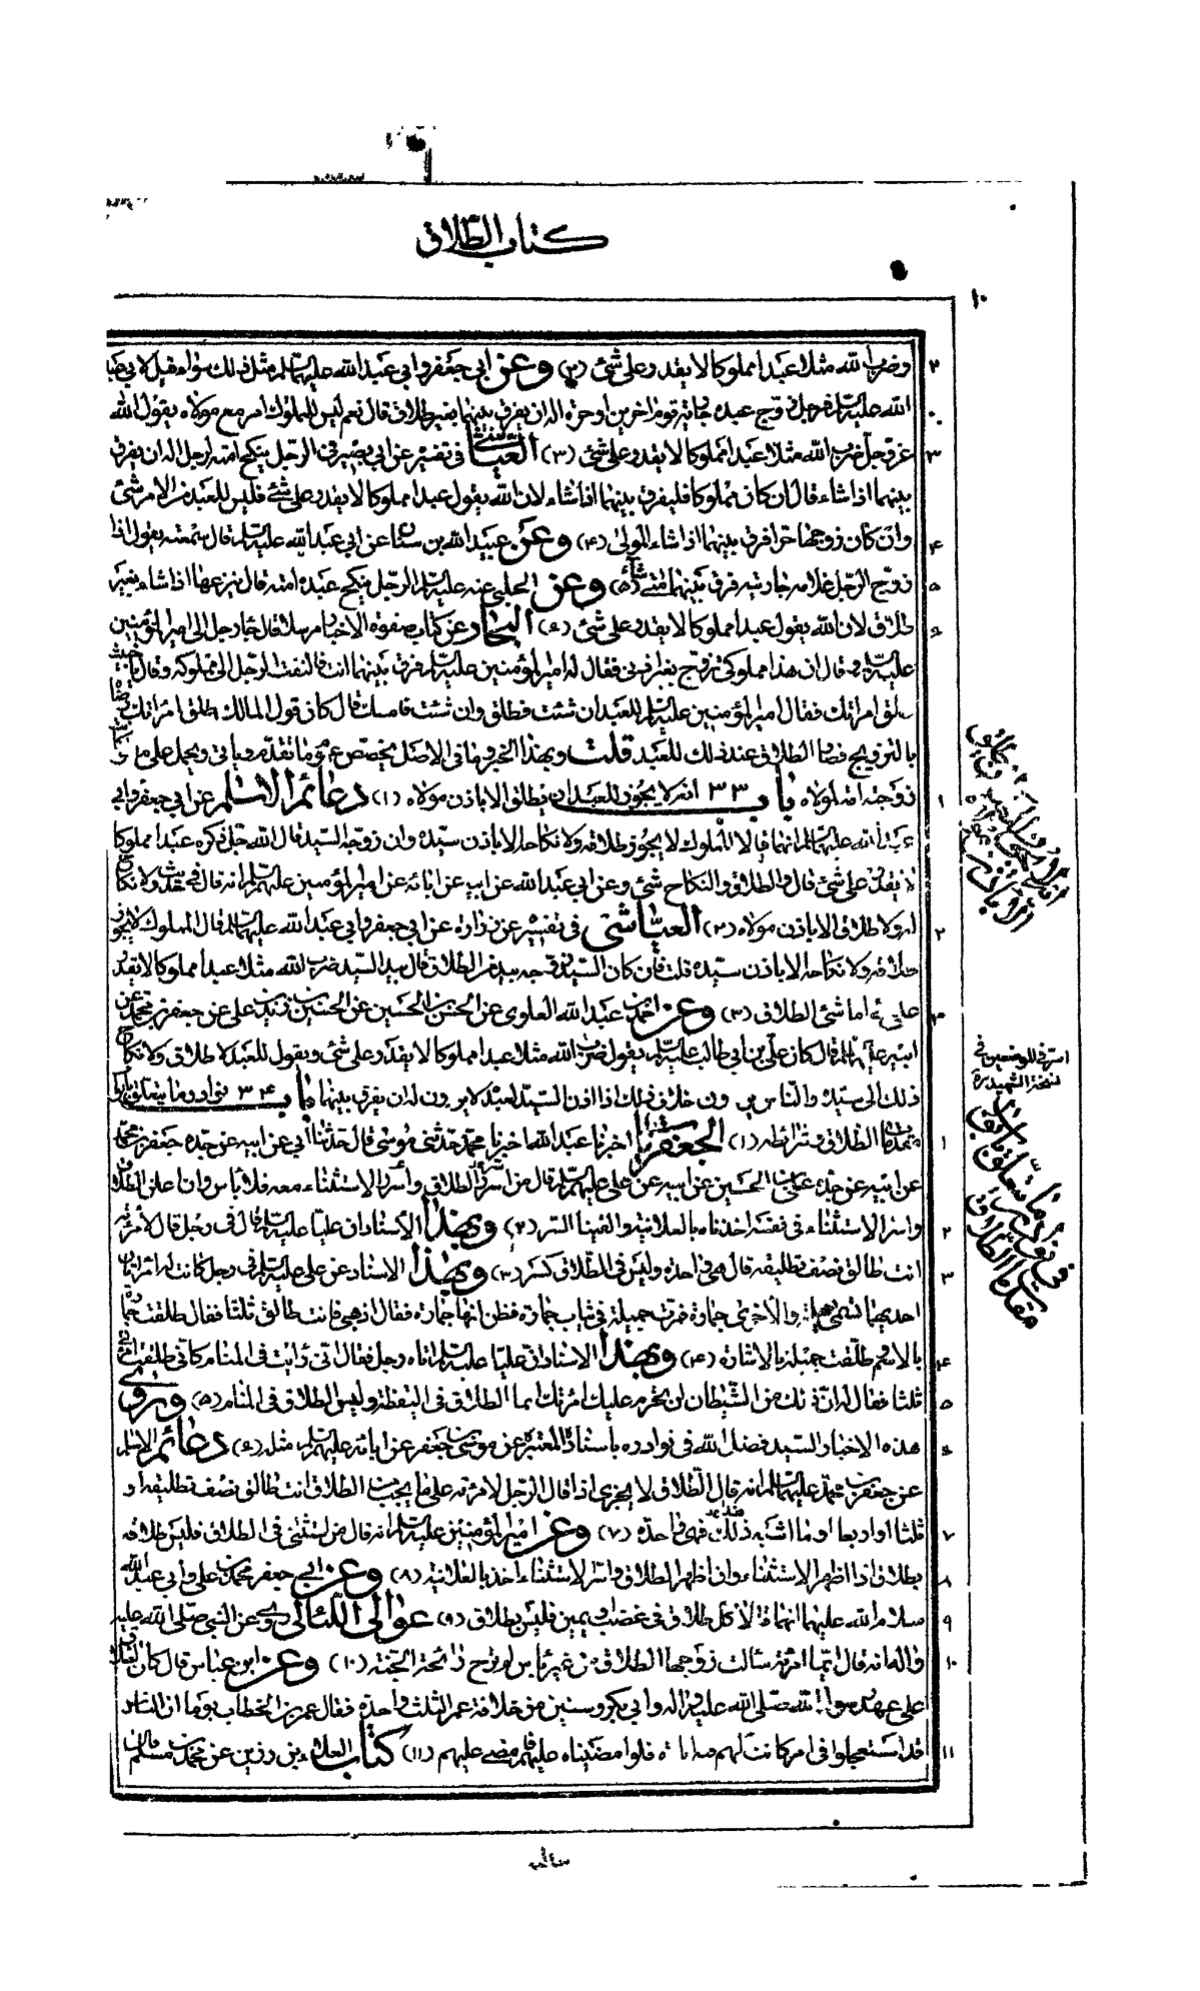 كتاب الطلاق
١٠
٢ وضرب الله مثلا عبدا مملوكا لا يقدر على شئ (٢) وعن ابي جعفر وابي عبد الله عليهما السلم مثل ذلك سواء قيل لابي
الله عليه السلم فرجل زوج عبده جارية قوم اخرين او حرة اله ان يفرق بينهما بغير طلاق قال نعم ليس للمملوك امر مع مولاه يقول الله
٣ عز وجل ضرب الله مثلا عبدا مملوكا لا يقدر على شئ (٣) العياشي في تفسير عن ابي بصير في الرجل ينكح امته لرجل اله ان يفرق
بينهما اذا شاء قال ان كان مملوكا فليفرق بينهما اذا شاء لان الله يقول عبدا مملوكا لا يقدر على شئ فليس للعبد من الامر شئ
٤ وان كان زوجها حرا فرق بينهما اذا شاء المولى (٤) وعن عبيد الله بن سنان عن ابي عبد الله عليه السلم قال سمعته يقول اذا
٥ زوج الرجل غلامه جاريته فرق بينهما متى شاء (٥) وعن الحلبي عنه عليه السلم الرجل ينكح عبده امته قال ينزعها اذا شاء بغير
٦ طلاق لان الله يقول عبدا مملوكا لا يقدر على شئ (٦) البحار عن كتاب صفوة الاخبار مرسلا قال جاء رجل الى امير المؤمنين
عليه السلم فقال ان هذا مملوكي تزوج بغير اذني فقال له امير المؤمنين عليه السلم فرق بينهما انت فالتفت الرجل الى مملوكه وقال يا خبيث
طلق امراتك فقال امير المؤمنين عليه السلم للعبد ان شئت فطلق وان شئت فامسك قال كان قول المالك طلق امراتك رضا
بالتزويج فصار الطلاق عند ذلك للعبد قلت وبهذا الخبر وما في الاصل يخصص عموم ما تقدم وياتي ويحمل على ما
١ زوجته امة لمولاه باب ٣٣ انه لا يجوز للعبد ان يطلق الا باذن مولاه (١) دعائم الاسلام عن ابي جعفر وابي
عبد الله عليهما السلم انهما قالا المملوك لا يجوز طلاقه ولا نكاحه الا باذن سيده وان زوجه السيد قال الله جل ذكره عبدا مملوكا
لا يقدر على شئ قال والطلاق والنكاح شئ وعن ابي عبد الله عن ابيه عن ابائه عن امير المؤمنين عليهم السلم انه قال في حديث ولا نكاح
٢ له ولا طلاق الا باذن مولاه (٢) العياشي في تفسير عن زرارة عن ابي جعفر وابي عبد الله عليهما السلم قال المملوك لا يجوز
طلاقه ولا نكاحه الا باذن سيده قلت فان كان السيد زوجه بيد من الطلاق قال بيد السيد ضرب الله مثلا عبدا مملوكا لا يقدر
٣ على شئ اما شئ الطلاق (٣) وعن احمد بن عبد الله العلوي عن الحسن بن الحسين عن الحسين بن زيد بن علي عن جعفر بن محمد عن
ابيه عليهما السلم قال كان علي بن ابي طالب عليه السلم يقول ضرب الله مثلا عبدا مملوكا لا يقدر على شئ ويقول للعبد لا طلاق ولا نكاح
ذلك الى سيده والناس يرون خلاف ذلك اذا اذن السيد لعبده لا يرون له ان يفرق بينهما باب ٣٤ نوادر ما يتعلق بابواب
١ مقدمات الطلاق وشرائطه (١) الجعفريات اخبرنا عبد الله اخبرنا محمد حدثني موسى قال حدثنا ابي عن ابيه عن جده جعفر بن محمد
عن ابيه عن جده علي بن الحسين عن ابيه عن علي عليهم السلم قال من اسر الطلاق واسر الاستثناء معه فلا باس وان اعلن الطلاق
٢ واسر الاستثناء في نفسه اخذناه بالعلانية والقينا السر (٢) وبهذا الاسناد ان عليا عليه السلم قال في رجل قال لامرته
٣ انت طالق نصف تطليقة قال هي واحدة وليس في الطلاق كسر (٣) وبهذا الاسناد عن علي عليه السلم في رجل كانت له امراتان
احديهما تسمى جميلة والاخرى جمادة فمرت جميلة في ثياب جمادة فظن انها جمادة فقال اذهبي فانت طالق ثلثا فقال طلقت جمادة
٤ بالاسم طلقت جميلة بالاشارة (٤) وبهذا الاسناد ان عليا عليه السلم اتاه رجل فقال اني رايت في المنام كاني طلقت امرتي
٥ ثلثا فقال له ان ذلك من الشيطان لن يحرم عليك امرتك انما الطلاق في اليقظة وليس الطلاق في المنام (٥) وروى
٦ هذه الاخبار السيد فضل الله في نوادره باسناده المعتبرة عن موسى بن جعفر عن ابائه عليهم السلم مثله (٦) دعائم الاسلام
عن جعفر بن محمد عليهما السلم انه قال الطلاق لا يجزى اذا قال الرجل لامرته على ما يجب من الطلاق انت طالق نصف تطليقة او
٧ ثلثا او اربعا او ما اشبه ذلك فهي واحدة (٧) وعن امير المؤمنين عليه السلم انه قال من استثنى في الطلاق فليس طلاقه
٨ بطلاق اذا اظهر الاستثناء وان اظهر الطلاق واسر الاستثناء اخذ بالعلانية (٨) وعن ابي جعفر محمد بن علي وابي عبد الله
٩ سلام الله عليهما انهما قالا كل طلاق في غضب او يمين فليس بطلاق (٩) عوالي اللئالي روى عن النبي صلى الله عليه
١٠ واله انه قال ايما امرئة سالت زوجها الطلاق من غير باس لم ترح رائحة الجنة (١٠) وعن ابن عباس قال كان الطلاق
على عهد رسول الله صلى الله عليه واله وابي بكر وسنين من خلافة عمر الثلث واحدة فقال عمر بن الخطاب يوما ان الناس
١١ قد استعجلوا في امر كانت لهم فيه اناة فلو امضيناه عليهم فمضى عليهم (١١) كتاب العلاء بن رزين عن محمد بن مسلم قال